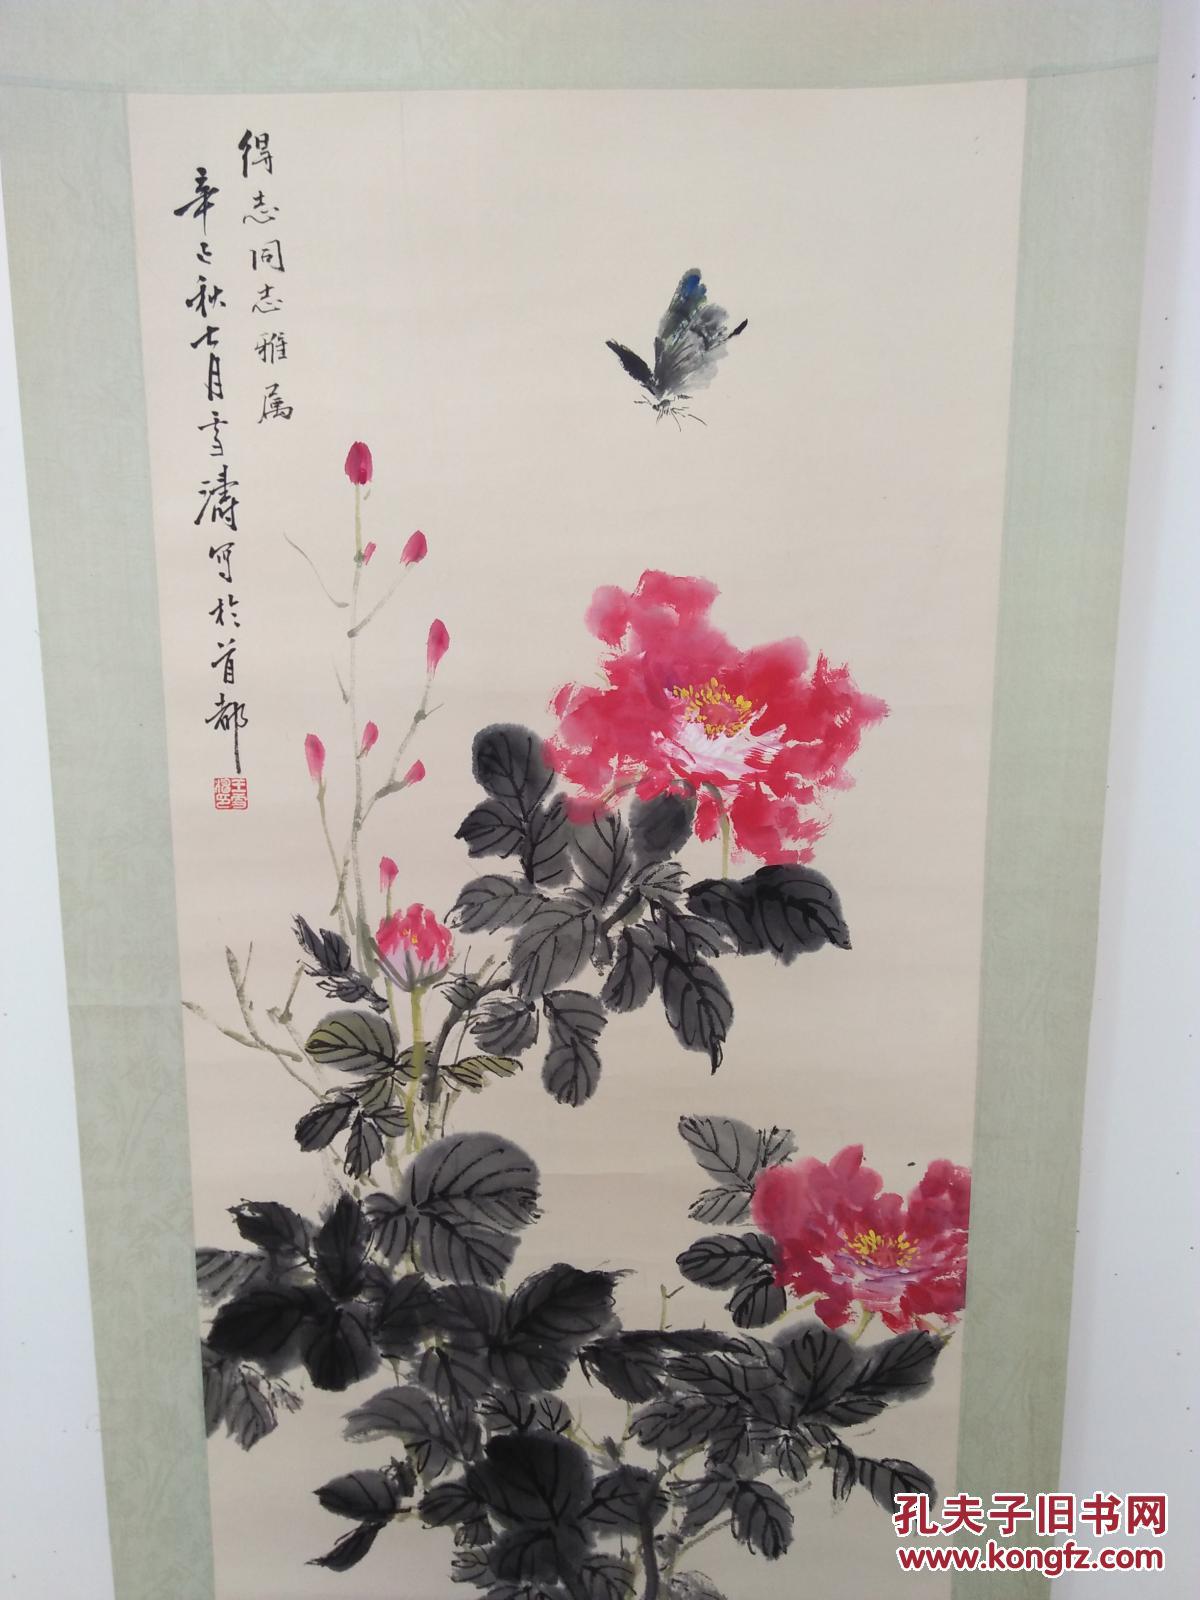 得志同志雅属
辛巳秋七月雪涛写於首都
王雪涛印
孔夫子旧书网
www.kongfz.com